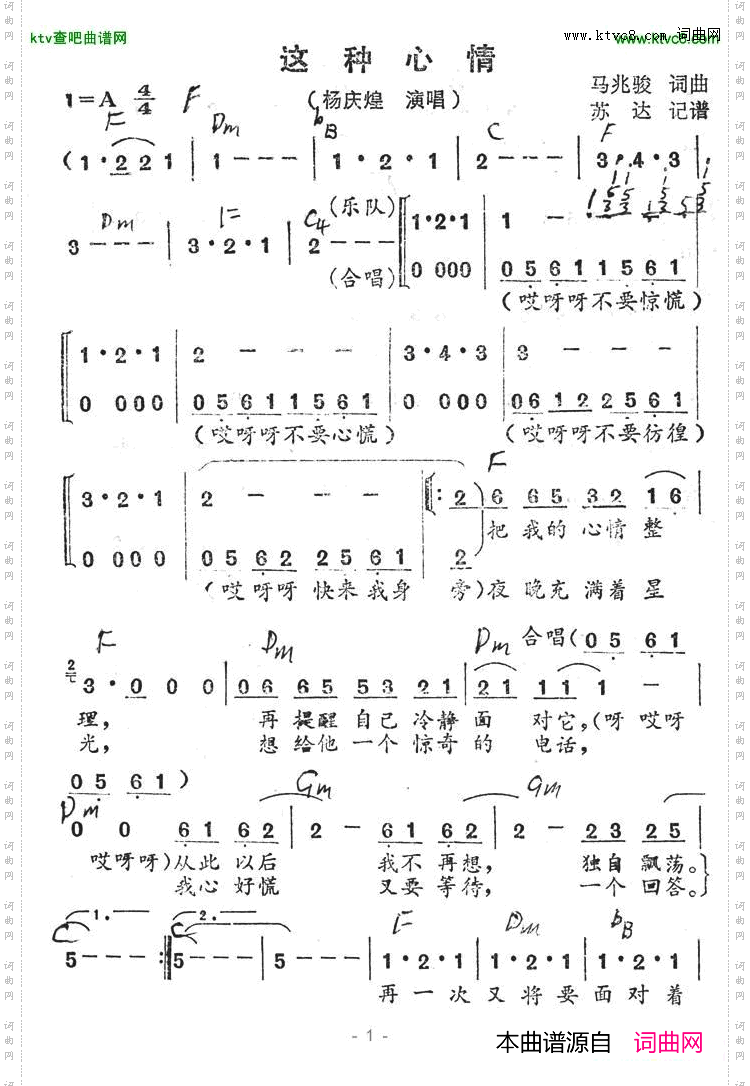 ktv查吧曲谱网
www.ktvc8.com 词曲网
www.ktvc8.com
这种心情
1=A 4/4 F
(杨庆煌 演唱)
马兆骏 词曲
苏 达 记谱
F Dm bB C F
(1·2 2 1 | 1 - - - | 1·2·1 | 2 - - - | 3·4·3 |
Dm F C4 (乐队)
3 - - - | 3·2·1 | 2 - - - | 1·2·1 | 1 - - -
(合唱) 0 000 | 0 5 6 1 1 5 6 1 |
(哎呀呀不要惊慌)
1·2·1 | 2 - - - | 3·4·3 | 3 - - - |
0 000 | 0 5 6 1 1 5 6 1 | 0 000 | 0 6 1 2 2 5 6 1 |
(哎呀呀不要心慌) (哎呀呀不要彷徨)
F
3·2·1 | 2 - - - |: 2 6 6 5 3 2 1 6 |
把我的心情整
0 000 | 0 5 6 2 2 5 6 1 | 2
(哎呀呀快来我身 旁)夜晚充满着星
F Dm Dm 合唱(0 5 6 1
3·0 0 0 | 0 6 6 5 5 3 2 1 | 2 1 1 1 1 - |
理, 再提醒自己冷静面 对它,(呀 哎呀
光, 想给他一个惊奇的 电话,
0 5 6 1)
Dm Gm Gm
0 0 6 1 6 2 | 2 - 6 1 6 2 | 2 - 2 3 2 5 |
哎呀呀)从此以后 我不再想, 独自飘荡。
我心好慌 又要等待, 一个回答。
C 1. C 2. F Dm bB
5 - - - :| 5 - - | 5 - - - | 1·2·1 | 1·2·1 | 1·2·1 |
再一次又将要面对着
- 1 -
本曲谱源自 词曲网
词曲网